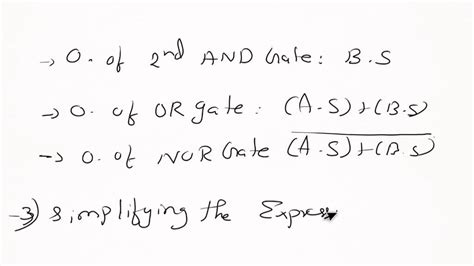 → O. of 2nd AND Gate: B.S
→ O. of OR gate: (A.S)+(B.S)
→ O. of NOR Gate (A.S)+(B.S)
→3) simplifying the Express